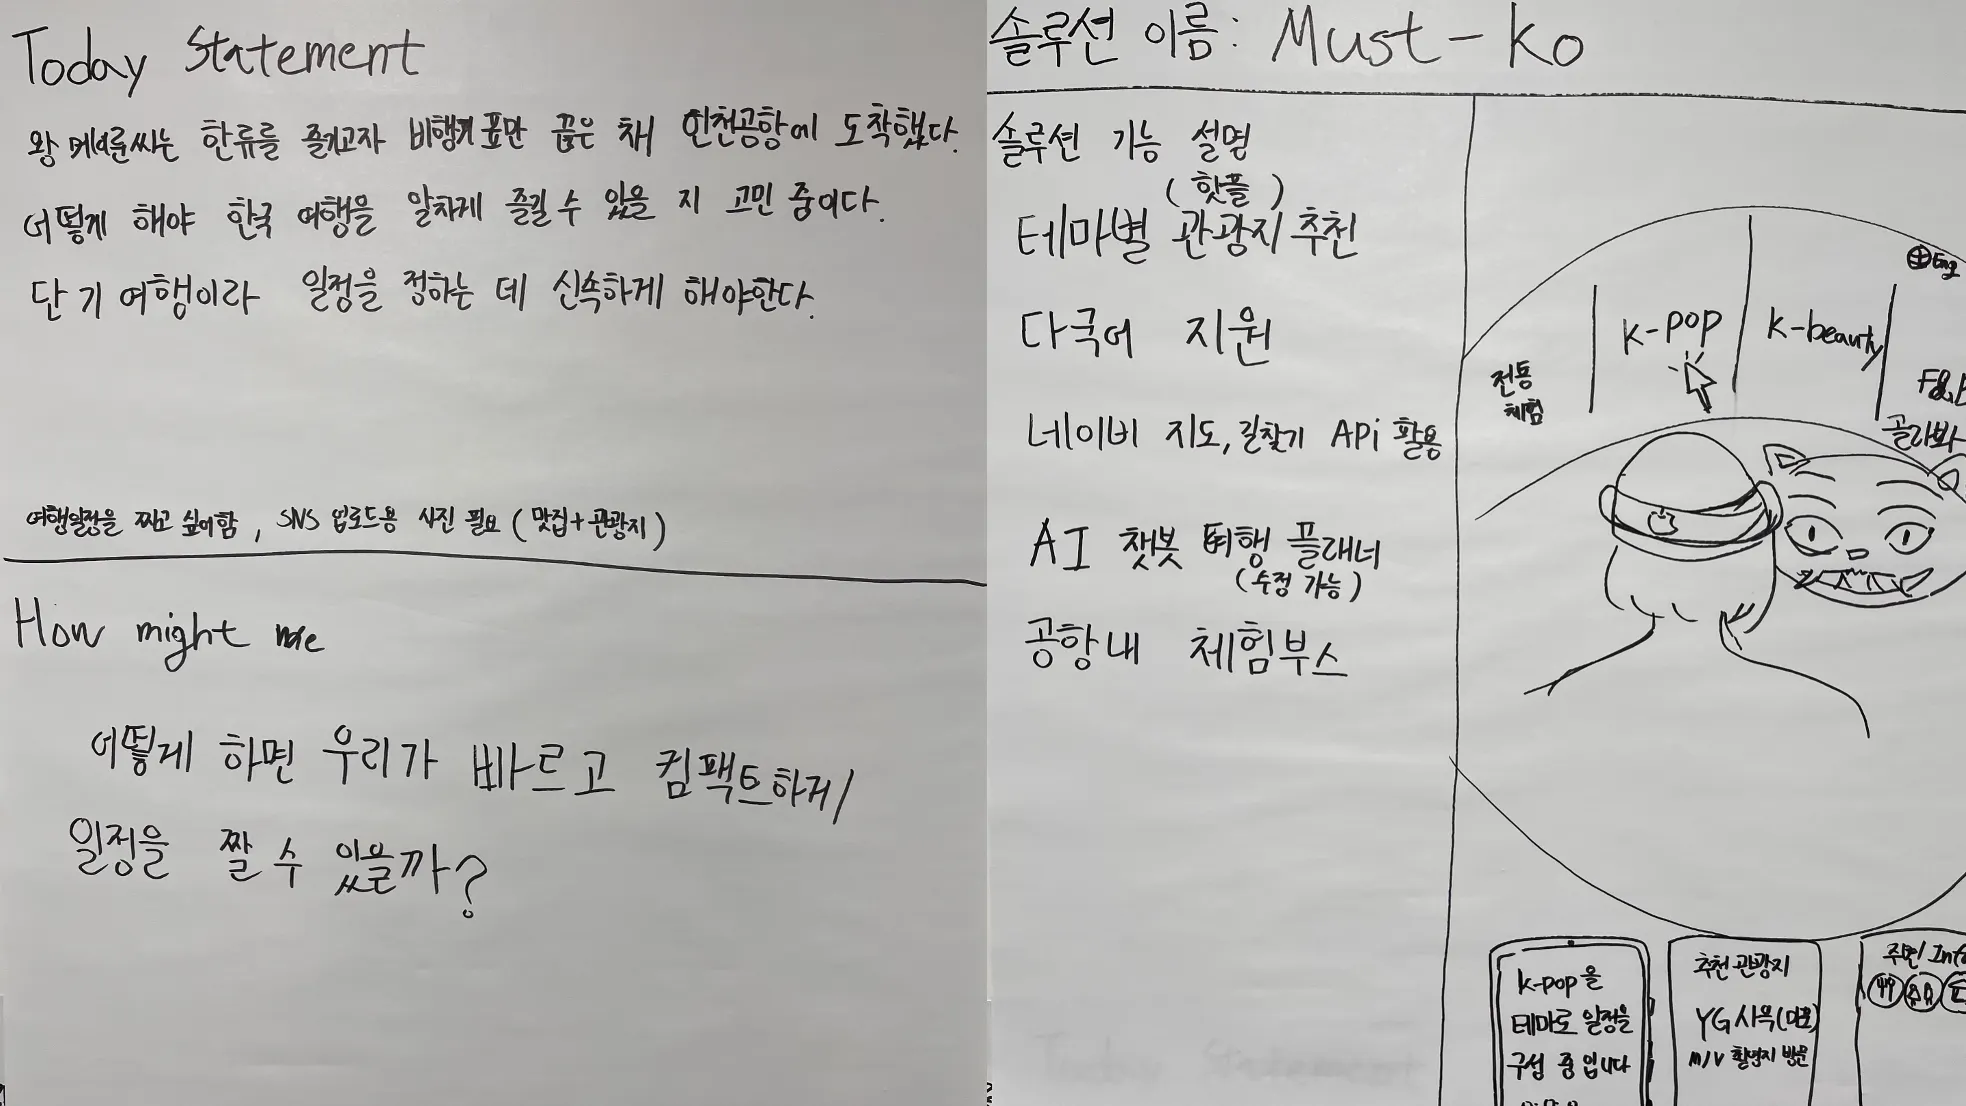 Today Statement
왕 메이룬씨는 한류를 즐기고자 비행기 표만 끊은 채 인천공항에 도착했다.
어떻게 해야 한국 여행을 알차게 즐길 수 있을 지 고민 중이다.
단기 여행이라 일정을 정하는 데 신속하게 해야한다.
여행일정을 짜고 싶어함, SNS 업로드용 사진 필요 (맛집+관광지)
How might we
어떻게 하면 우리가 빠르고 컴팩트하게
일정을 짤 수 있을까?
솔루션 이름: Must-ko
솔루션 기능 설명
(핫플)
테마별 관광지 추천
다국어 지원
네이버 지도, 길찾기 APi 활용
AI 챗봇 여행 플래너
(수정 가능)
공항 내 체험부스
Eng
전통
체험
K-pop
K-beauty
골라봐
K-pop을
테마로 일정을
구성 중입니다
추천 관광지
YG사옥(마포)
M/V 촬영지 방문
주변